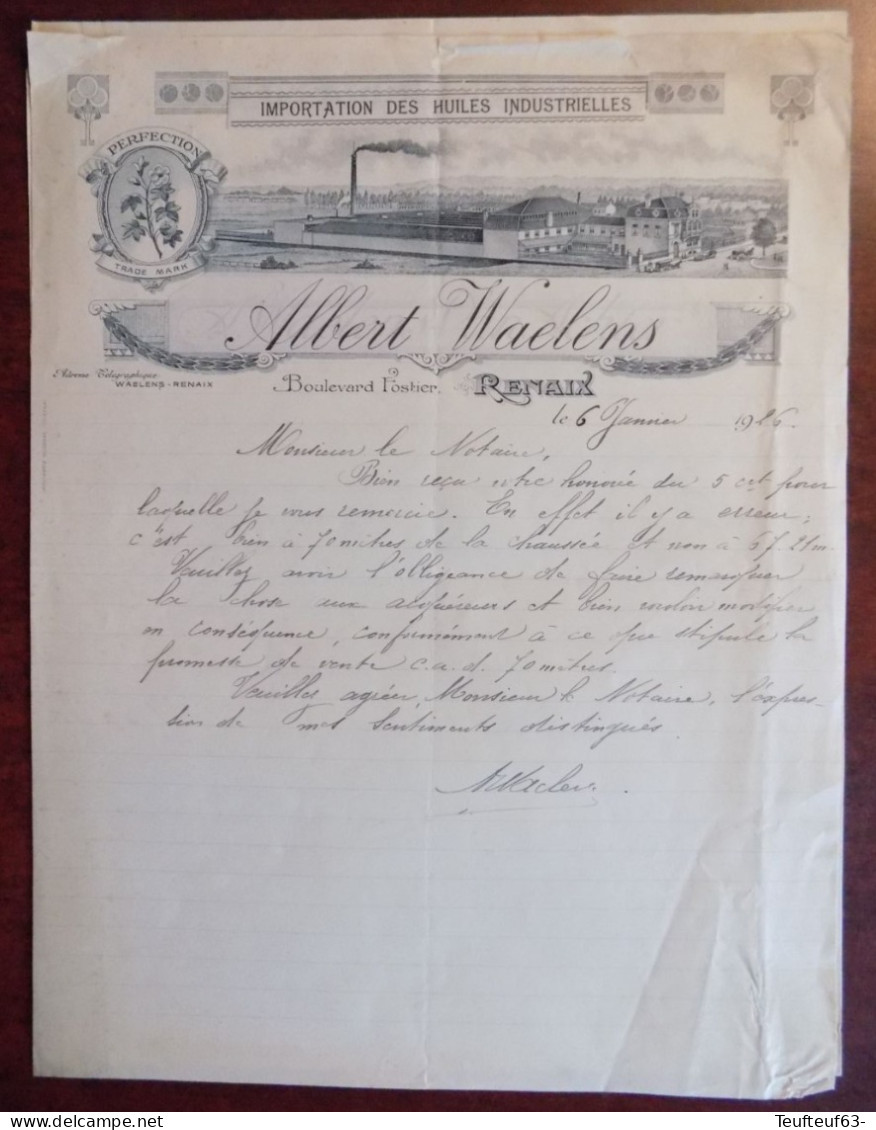 IMPORTATION DES HUILES INDUSTRIELLES
PERFECTION
TRADE MARK
Albert Waelens
Adresse Télégraphique
WAELENS-RENAIX
Boulevard Fostier. RENAIX
le 6 Janvier 1926.
Monsieur le Notaire,
Bien reçu votre honorée du 5 crt pour
laquelle je vous remercie. En effet il y a erreur;
c'est bien à 70 mètres de la chaussée et non à 57.21m.
Veuillez avoir l'obligeance de faire remarquer
la chose aux acquéreurs et bien vouloir modifier
en conséquence, conformément à ce que stipule la
promesse de vente c.a.d. 70 mètres.
Veuillez agréer, Monsieur le Notaire, l'expres-
sion de mes sentiments distingués
AWaelens.
Teufteuf63-